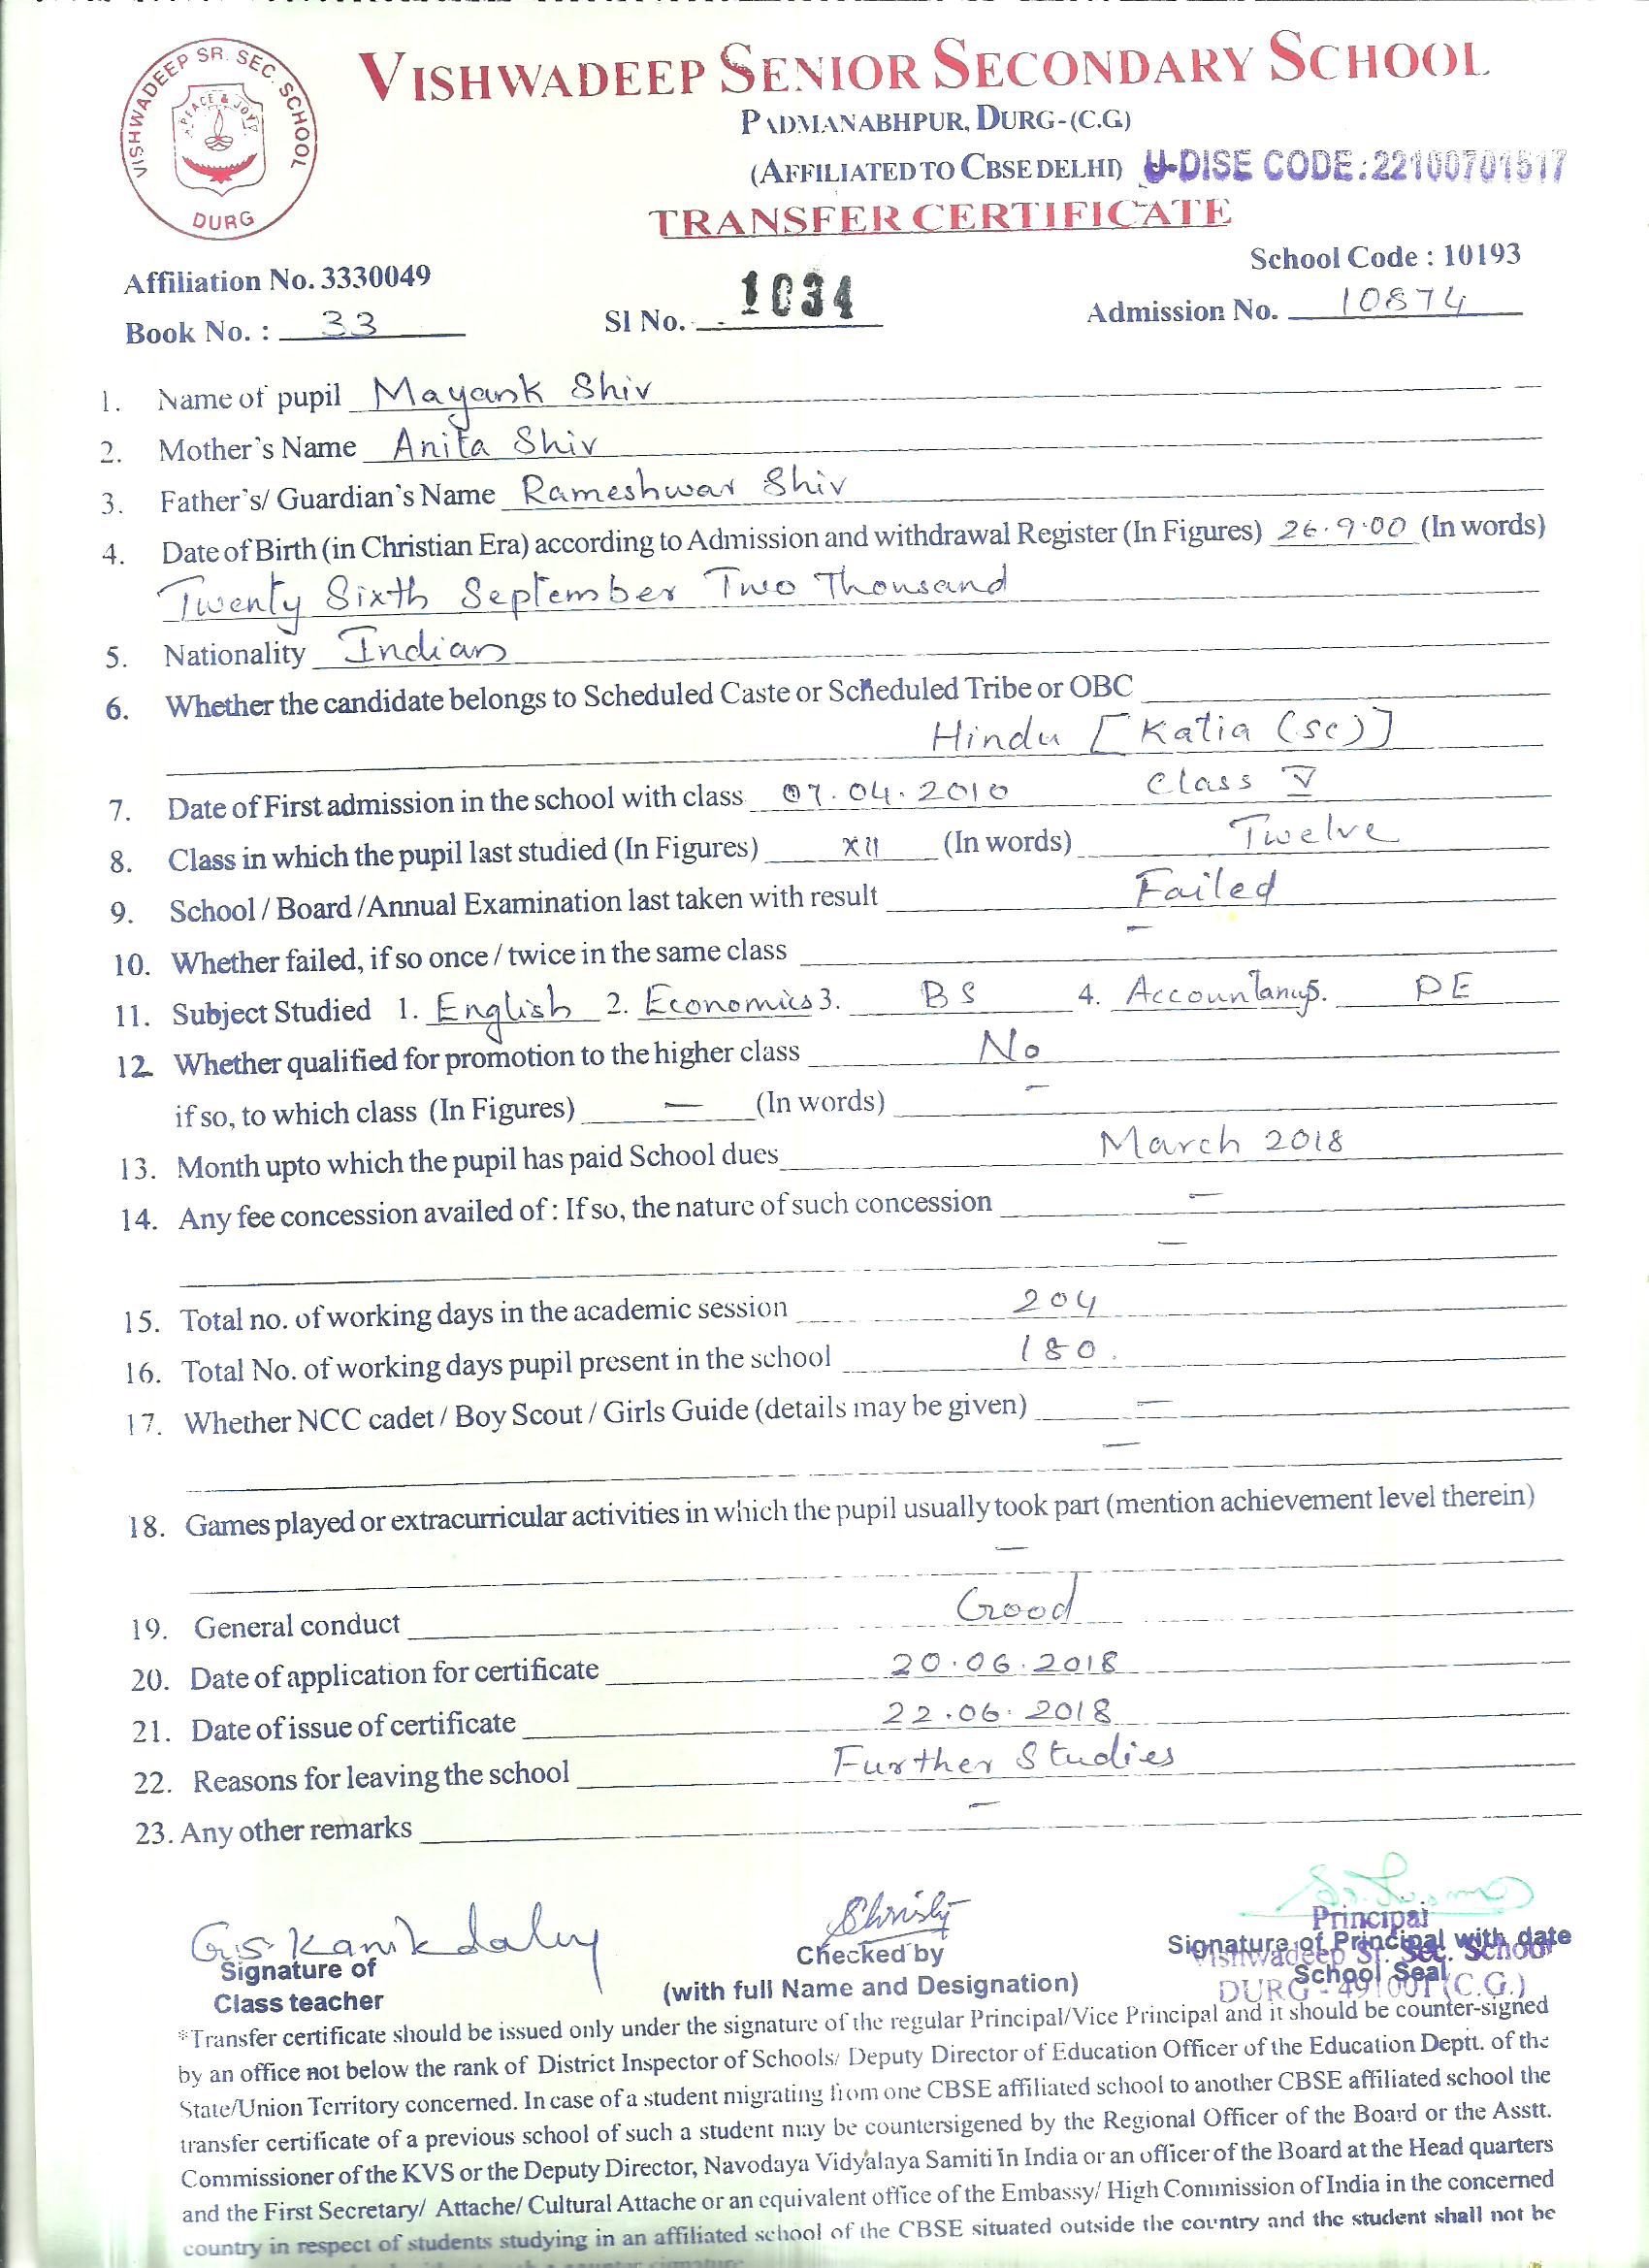 VISHWADEEP SR. SEC. SCHOOL
PEACE & JOY
DURG
VISHWADEEP SENIOR SECONDARY SCHOOL
PADMANABHPUR, DURG-(C.G)
(AFFILIATED TO CBSE DELHI) U-DISE CODE:22100701517
TRANSFER CERTIFICATE
School Code : 10193
Affiliation No. 3330049
Book No. : 33 Sl No. 1034 Admission No. 10874
1. Name of pupil Mayank Shiv
2. Mother's Name Anita Shiv
3. Father's/ Guardian's Name Rameshwar Shiv
4. Date of Birth (in Christian Era) according to Admission and withdrawal Register (In Figures) 26.9.00 (In words)
Twenty Sixth September Two Thousand
5. Nationality Indian
6. Whether the candidate belongs to Scheduled Caste or Scheduled Tribe or OBC
Hindu [Katia (SC)]
7. Date of First admission in the school with class 07.04.2010 Class V
8. Class in which the pupil last studied (In Figures) XII (In words) Twelve
9. School / Board /Annual Examination last taken with result Failed
10. Whether failed, if so once / twice in the same class –
11. Subject Studied 1. English 2. Economics 3. BS 4. Accountancy 5. PE
12. Whether qualified for promotion to the higher class No
if so, to which class (In Figures) — (In words) –
13. Month upto which the pupil has paid School dues March 2018
14. Any fee concession availed of : If so, the nature of such concession —
—
15. Total no. of working days in the academic session 204
16. Total No. of working days pupil present in the school 180.
17. Whether NCC cadet / Boy Scout / Girls Guide (details may be given) —
—
18. Games played or extracurricular activities in which the pupil usually took part (mention achievement level therein)
—
19. General conduct Good
20. Date of application for certificate 20.06.2018
21. Date of issue of certificate 22.06.2018
22. Reasons for leaving the school Further Studies
23. Any other remarks –
Signature of
Class teacher
Checked by
(with full Name and Designation)
Principal
Signature of Principal with date
Vishwadeep Sr. Sec. School
School Seal
DURG - 491001 (C.G.)
*Transfer certificate should be issued only under the signature of the regular Principal/Vice Principal and it should be counter-signed
by an office not below the rank of District Inspector of Schools/ Deputy Director of Education Officer of the Education Deptt. of the
State/Union Territory concerned. In case of a student migrating from one CBSE affiliated school to another CBSE affiliated school the
transfer certificate of a previous school of such a student may be countersigned by the Regional Officer of the Board or the Asstt.
Commissioner of the KVS or the Deputy Director, Navodaya Vidyalaya Samiti in India or an officer of the Board at the Head quarters
and the First Secretary/ Attache/ Cultural Attache or an equivalent office of the Embassy/ High Commission of India in the concerned
country in respect of students studying in an affiliated school of the CBSE situated outside the country and the student shall not be